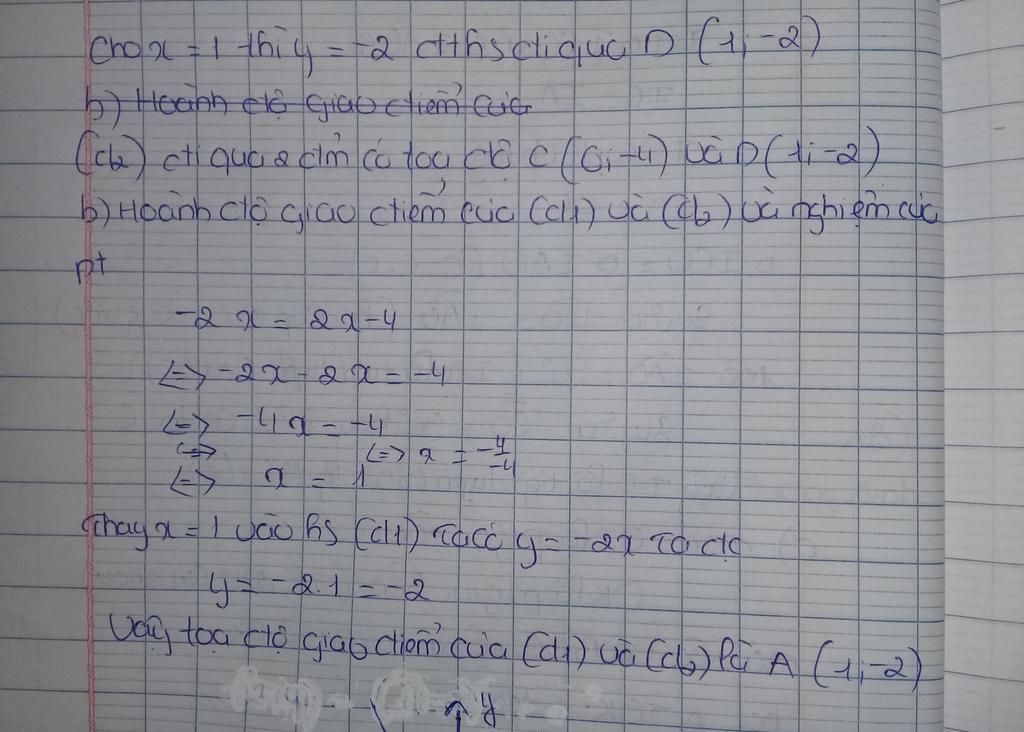 Cho x = 1 thì y = -2 đths đi qua D (1; -2)
b) Hoành độ giao điểm của
(d2) đi qua 2 đm có tọa độ C (0; -4) và D (1; -2)
b) Hoành độ giao điểm của (d1) và (d2) là nghiệm của
pt
-2x = 2x - 4
<=> -2x - 2x = -4
<=> -4x = -4
<=> <=> x = -4/-4
<=> x = 1
Thay x = 1 vào hs (d1) ta có y = -2x ta đc
y = -2.1 = -2
Vậy tọa độ giao điểm của (d1) và (d2) là A (1; -2)
y